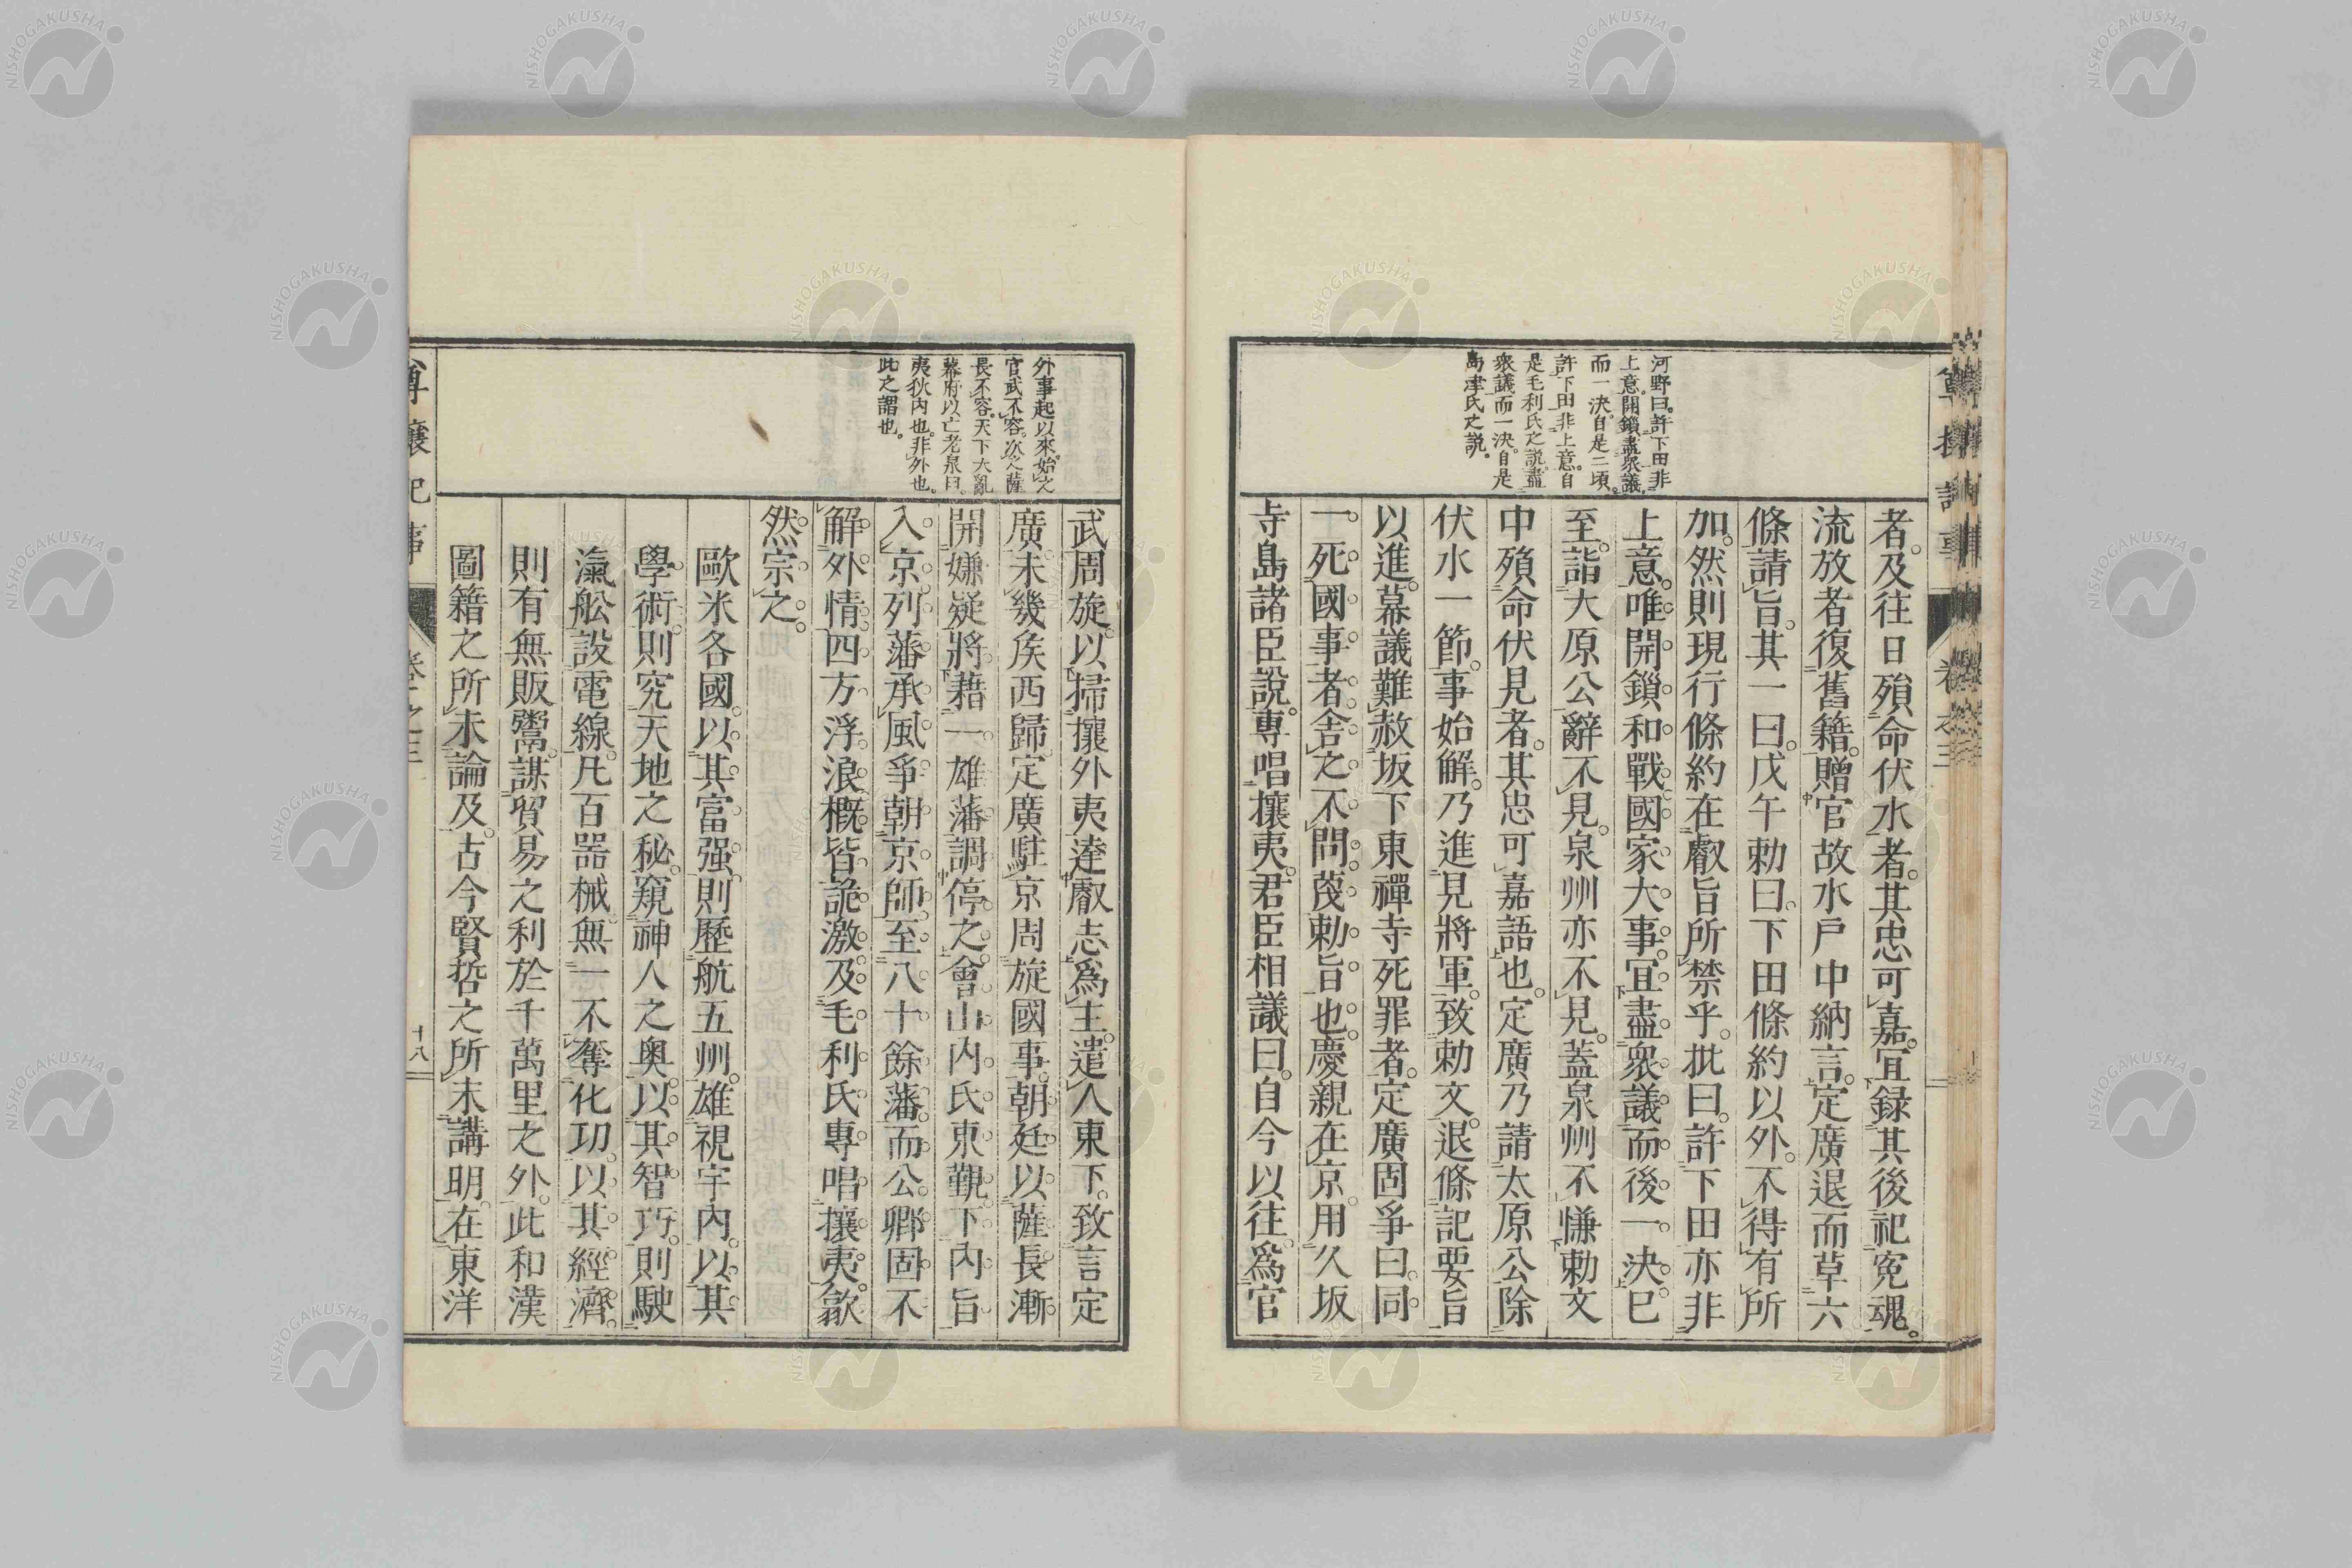 尊攘記事
卷之三
河野曰。許下田非
上意。開鎖盡衆議。
而一決。自是二項。
許下田非上意。自
是毛利氏之說。盡
衆議而一決。自是
島津氏之說。
者。及往日殞命伏水者。其忠可嘉。宜録其後祀寃魂。
流放者復舊籍。贈官故水戸中納言。定廣退而草六
條請旨。其一曰。戊午勅曰。下田條約以外。不得有所
加。然則現行條約在叡旨所禁乎。批曰。許下田亦非
上意。唯開鎖和戰國家大事。宜盡衆議而後一決。已
至。詣大原公。辭不見。泉州亦不見。蓋泉州不慊勅文
中殞命伏見者。其忠可嘉語也。定廣乃請太原公除
伏水一節。事始解。乃進見將軍。致勅文。退條記要旨
以進。幕議難赦坂下東禪寺死罪者。定廣固爭曰。同
一死。國事者。舍之不問。蔑勅旨也。慶親在京。用久坂
寺島諸臣說。專唱攘夷。君臣相議曰。自今以往。爲官
外事起以來。始之
官武不容。次之薩
長不容。天下大亂
幕府以亡。老泉曰。
夷狄内也。非外也。
此之謂也。
武周旋。以掃攘外夷達叡志爲主。遣人東下。致言定
廣。未幾矦西歸。定廣駐京周旋國事。朝廷以薩長漸
開嫌疑。將藉一雄藩調停之。會山内氏東覲。下内旨
入京。列藩承風爭朝京師。至八十餘藩。而公卿固不
解外情。四方浮浪概皆詭激。及毛利氏專唱攘夷。歙
然宗之。
歐米各國。以其富强。則歷航五州。雄視宇内。以其
學術。則究天地之秘。窺神人之奥。以其智巧。則駛
滊舩設電線。凡百器械無一不奪化功。以其經濟。
則有無販鬻。謀貿易之利於千萬里之外。此和漢
圖籍之所未論及。古今賢哲之所未講明。在東洋
尊攘記事
卷之三
十八